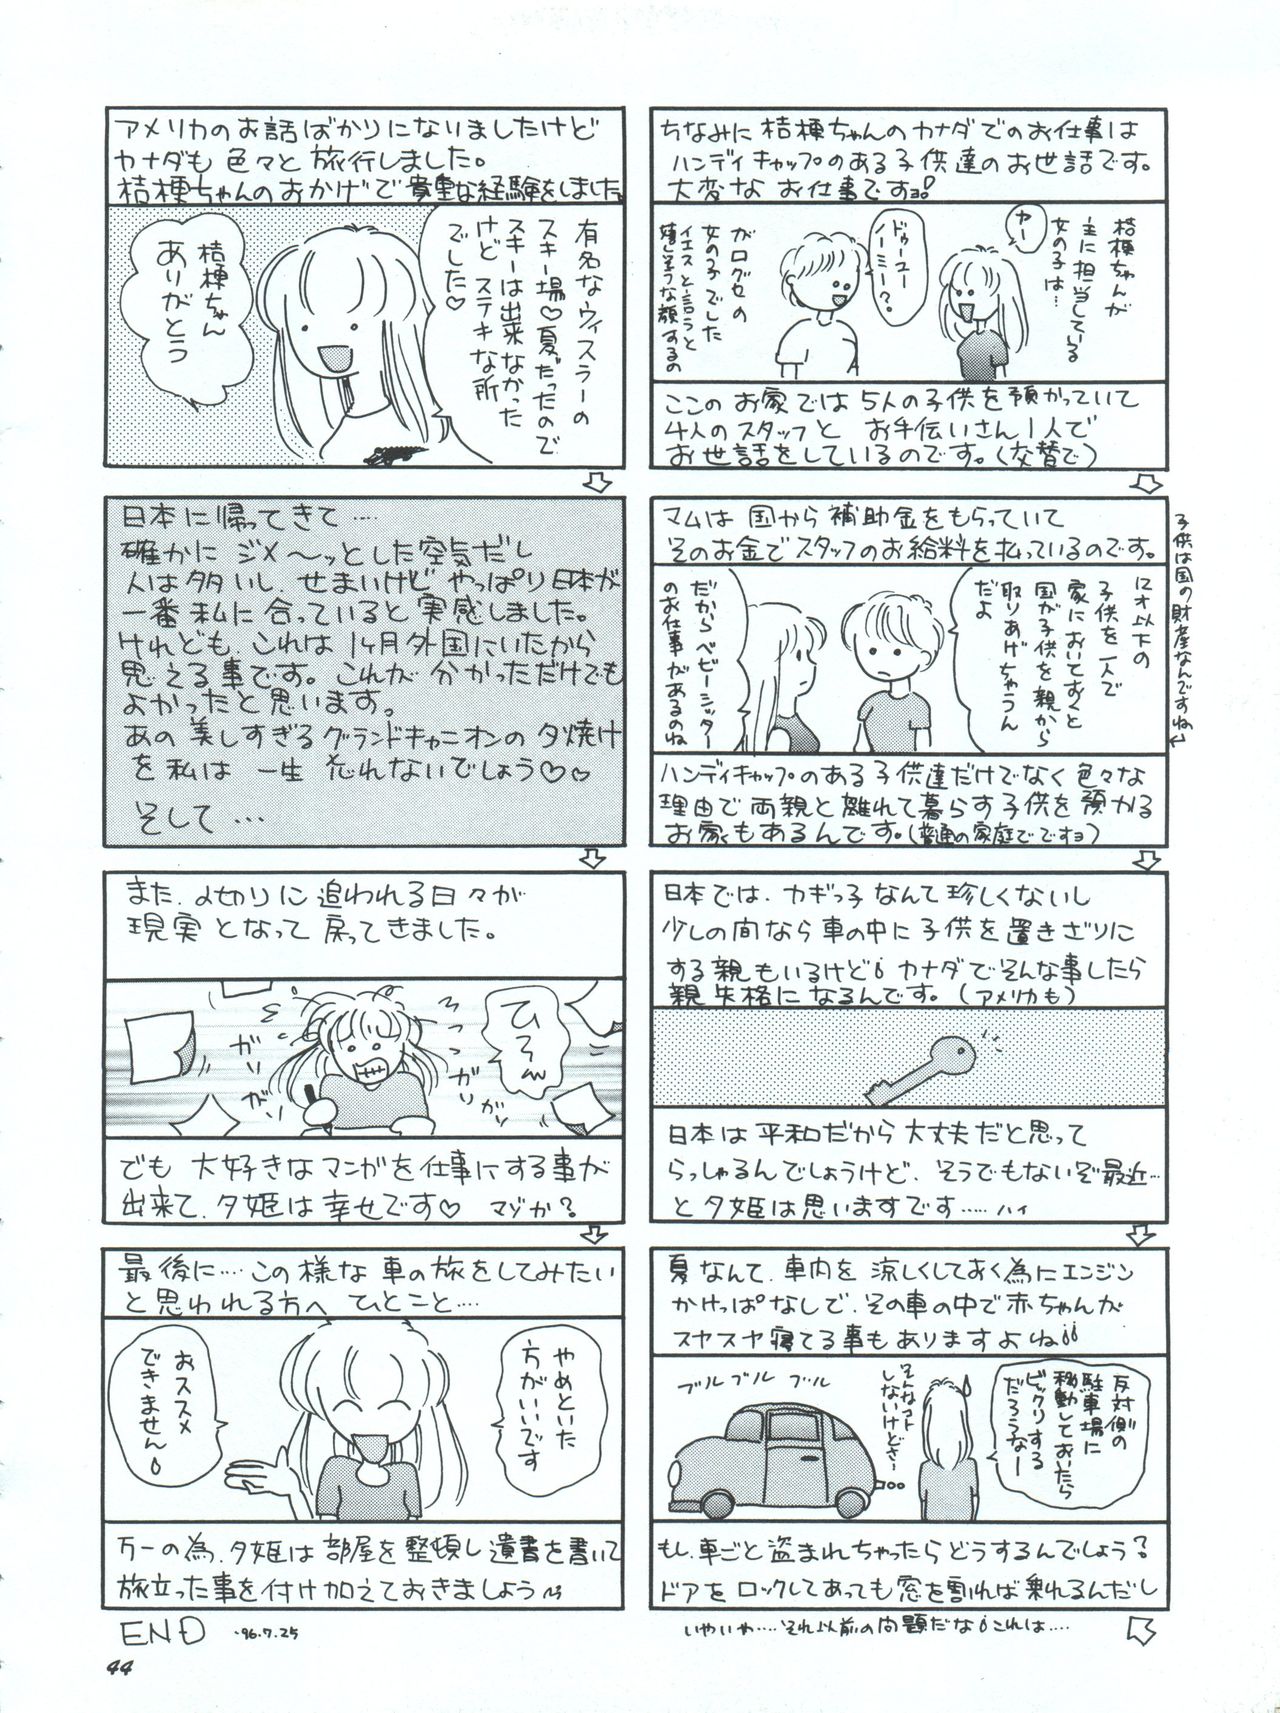 ちなみに桔梗ちゃんのカナダでのお仕事は
ハンディキャップのある子供達のお世話です。
大変な お仕事ですョ!
桔梗ちゃんが
主に担当している
女の子は…
ヤー
ドゥーユー
ノーミー?
がログセの
女の子でした
イエスと言うと
嬉しそうな顔するの
ここの お家では 5人の子供を預かっていて
4人のスタッフと お手伝いさん1人で
お世話をしているのです。(交替で)
マムは 国から 補助金をもらっていて
そのお金でスタッフのお給料を払っているのです。
子供は国の財産なんですね
12才以下の
子供を一人で
家においておくと
国が子供を親から
取りあげちゃうん
だよ
だからベビーシッター
のお仕事があるのね
ハンディキャップのある子供達だけでなく色々な
理由で両親と離れて暮らす子供を預かる
お家もあるんです。(普通の家庭でですョ)
日本では、カギっ子なんて珍しくないし
少しの間なら車の中に子供を置きざりに
する親もいるけど カナダでそんな事したら
親失格になるんです。(アメリカも)
日本は平和だから大丈夫だと思って
らっしゃるんでしょうけど、そうでもないぞ最近…
と夕姫は思いますです……ハイ
夏なんて、車内を 涼しくしておく為にエンジン
かけっぱなしで、その車の中で赤ちゃんが
スヤスヤ寝てる事もありますよね!!
反対側の
駐車場に
移動しておいたら
ビックリする
だろうなー
そんなコト
しないけどさー
ブルブルブル
もし、車ごと盗まれちゃったらどうするんでしょう?
ドアをロックしてあっても窓を割れば乗れるんだし
いやいや……それ以前の問題だな これは……
アメリカのお話ばかりになりましたけど
カナダも色々と旅行しました。
桔梗ちゃんのおかげで貴重な経験をしました
有名なウィスラーの
スキー場♡夏だったので
スキーは出来なかった
けど ステキな所
でした♡
桔梗ちゃん
ありがとう
日本に帰ってきて……
確かに ジメ〜ッとした空気だし
人は多いし、せまいけど やっぱり日本が
一番私に合っていると実感しました。
けれども、これは 1ヶ月外国にいたから
思える事です。これが分かっただけでも
よかったと思います。
あの美しすぎるグランドキャニオンの夕焼け
を私は 一生 忘れないでしょう♡♡
そして…
また、〆切りに追われる日々が
現実となって 戻ってきました。
ひ〜ん
ガリガリ
ガリガリ
でも 大好きなマンガを仕事にする事が
出来て、夕姫は幸せです♡ マゾか?
最後に…この様な 車の旅をしてみたい
と思われる方へ ひとこと…
やめといた
方がいいです
おススメ
できません
万一の為、夕姫は部屋を整頓し遺書を書いて
旅立った事を付け加えておきましょう〜
END '96.7.25
44